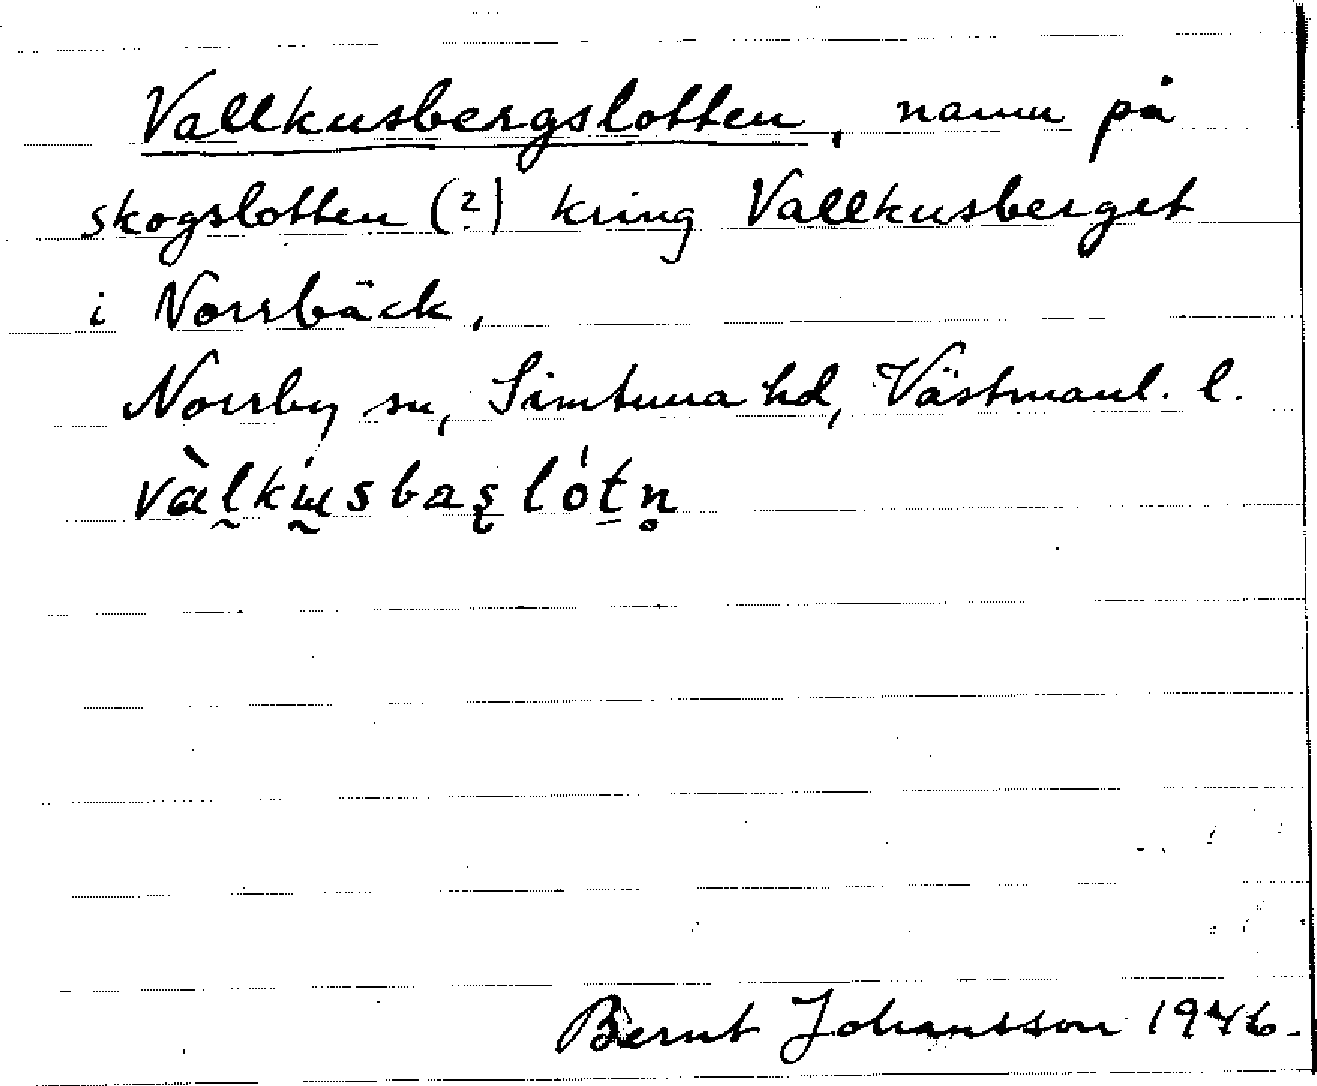 Vallkusbergslotten, namn på
skogslotten (?) kring Vallkusberget
i Norrbäck,
Norrby sn, Simtuna hd, Västmanl. l.
vàl̰kɯ̰́sbaʂlót̠n̥
Bernt Johansson 1946.